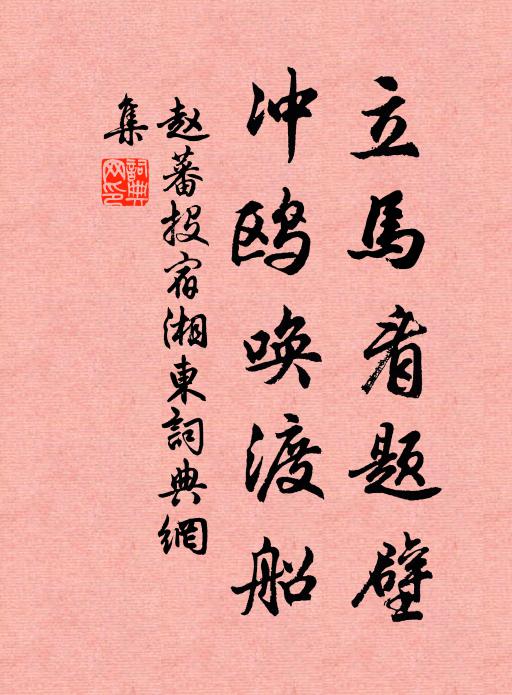 立馬看題壁
冲鸥唤渡船
赵蕃投宿湘東詞典網
集
詞典網印